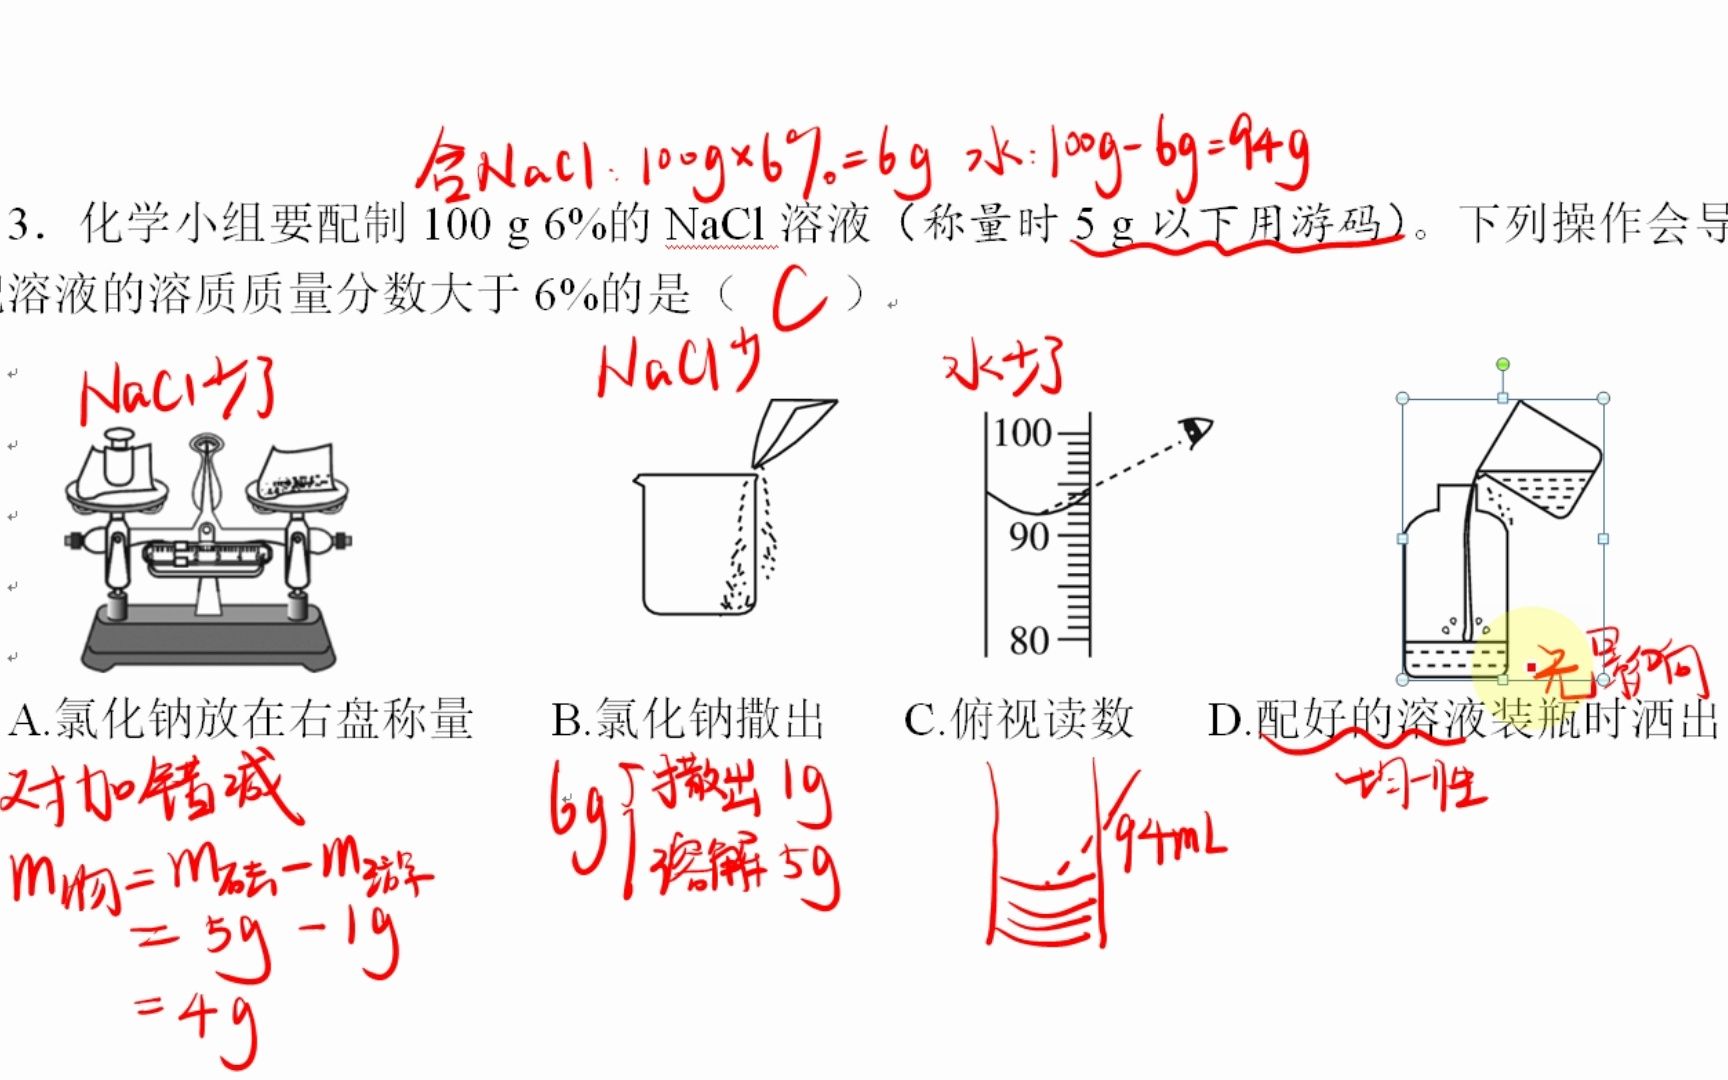 含NaCl：100g×6%=6g 水：100g-6g=94g
3．化学小组要配制 100 g 6%的 NaCl 溶液（称量时 5 g 以下用游码）。下列操作会导
溶液的溶质质量分数大于 6%的是（ C ）
NaCl少了
NaCl少
水少了
100
90
80
无影响
A.氯化钠放在右盘称量
B.氯化钠撒出
C.俯视读数
D.配好的溶液装瓶时洒出
对加错减
m物=m砝-m游
=5g-1g
=4g
6g
撒出1g
溶解5g
94mL
均一性